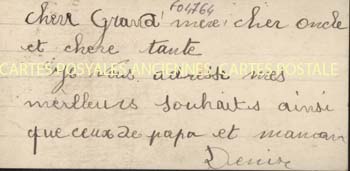 Cher Grand' mère cher oncle
F04764
et chère tante
CARTES POSTALES ANCIENNES CARTES POSTALE
Je vous adresse mes
meilleurs souhaits ainsi
que ceux de papa et maman
Denise